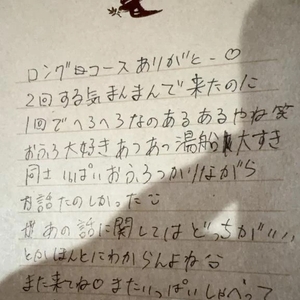 ロング母コース ありがとー♡
2回する気まんまんで来たのに
1回でへろへろなのあるあるやね笑
おふろ大好き あつあつ湯船大すき
同士 いっぱいおふろつかりながら
お話たのしかった
あの話に関しては どっちがいい
とかほんとにわからんよね
また来てね♡ またいっぱいしゃべって